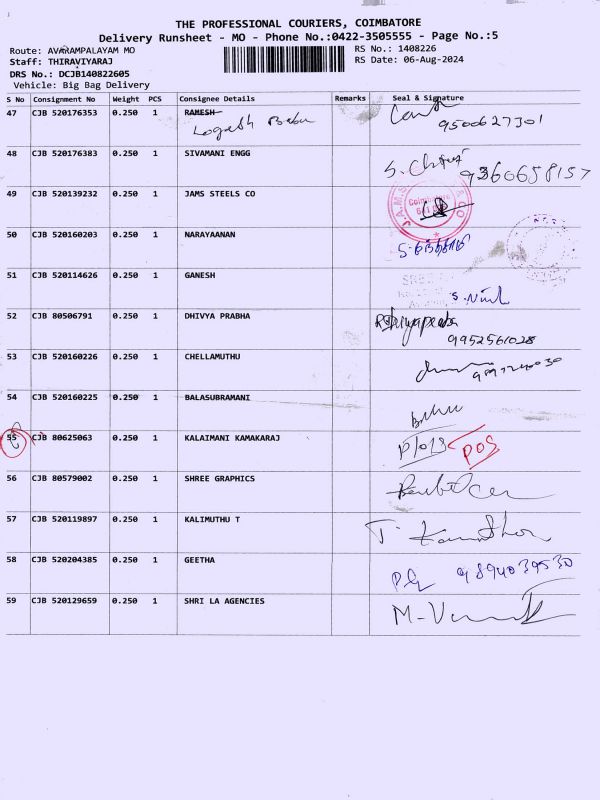 THE PROFESSIONAL COURIERS, COIMBATORE
Delivery Runsheet - MO - Phone No.:0422-3505555 - Page No.:5
Route: AVARAMPALAYAM MO
RS No.: 1408226
Staff: THIRAVIYARAJ
RS Date: 06-Aug-2024
DRS No.: DCJB140822605
Vehicle: Big Bag Delivery
S No Consignment No Weight PCS Consignee Details Remarks Seal & Signature
47 CJB 520176353 0.250 1 RAMESH
Logesh Babu
9500627301
48 CJB 520176383 0.250 1 SIVAMANI ENGG
9360658157
49 CJB 520139232 0.250 1 JAMS STEELS CO
50 CJB 520160203 0.250 1 NARAYAANAN
51 CJB 520114626 0.250 1 GANESH
52 CJB 80506791 0.250 1 DHIVYA PRABHA
9952561028
53 CJB 520160226 0.250 1 CHELLAMUTHU
54 CJB 520160225 0.250 1 BALASUBRAMANI
55 CJB 80625063 0.250 1 KALAIMANI KAMAKARAJ
POS
56 CJB 80579002 0.250 1 SHREE GRAPHICS
57 CJB 520119897 0.250 1 KALIMUTHU T
58 CJB 520204385 0.250 1 GEETHA
9894039530
59 CJB 520129659 0.250 1 SHRI LA AGENCIES